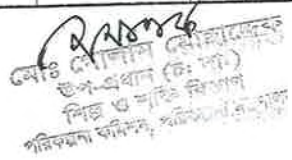 মোঃ গোলাম মোছাদ্দেক
উপ-প্রধান (চঃ দাঃ)
শিল্প ও শক্তি বিভাগ
পরিকল্পনা কমিশন, পরিকল্পনা